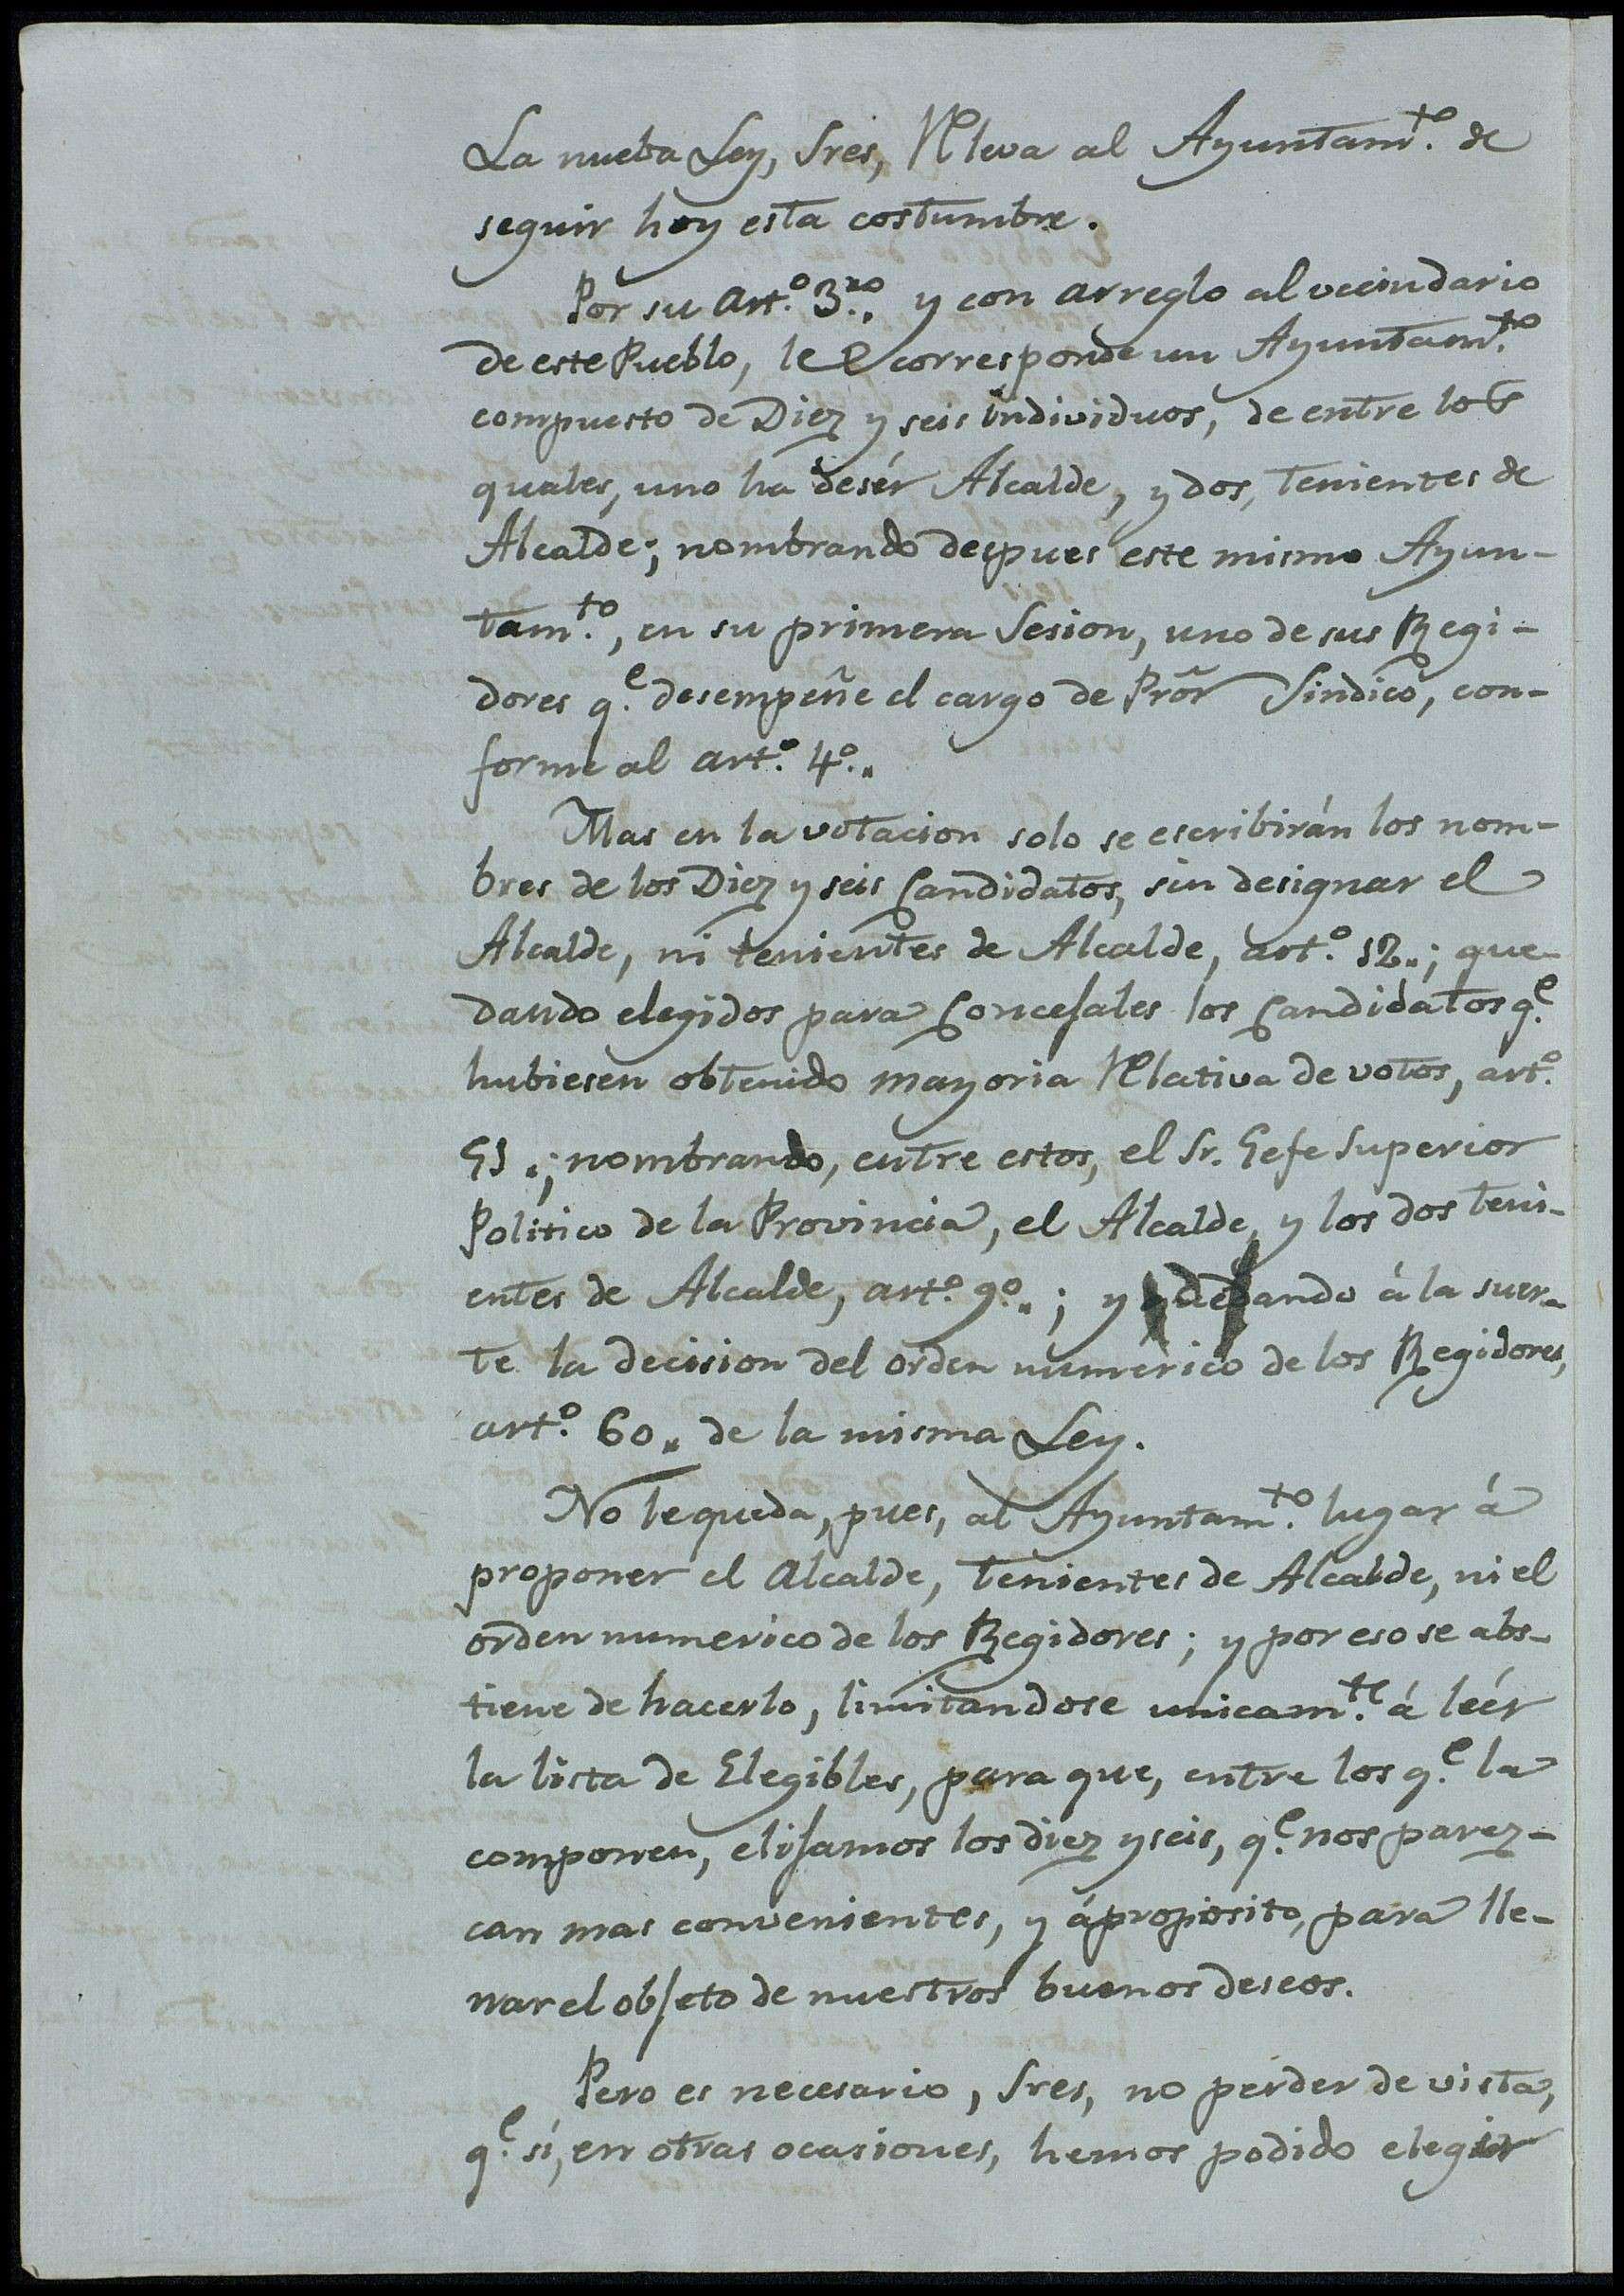 La nueba Ley, Sres, Releva al Ayuntam.to de
seguir hoy esta costumbre.
Por su Art.o 3.ro,, y con arreglo al vecindario
de este Pueblo, le corresponde un Ayuntam.to
compuesto de Diez y seis individuos, de entre los
quales, uno ha desér Alcalde, y dos, tenientes de
Alcalde; nombrando despues este mismo Ayun-
tam.to, en su primera Sesion, uno de sus Regi-
dores q.e desempeñe el cargo de Prõr Sindico, con-
forme al art.o 4.o,,
Mas en la votacion solo se escribirán los nom-
bres de los Diez y seis Candidatos, sin designar el
Alcalde, ni tenientes de Alcalde, art.o 12,,; que-
dando elegidos para Concejales los Candidatos q.e
hubiesen obtenido mayoria Relativa de votos, art.o
51,,; nombrando, entre estos, el Sr. Gefe Superior
Politico de la Provincia, el Alcalde, y los dos teni-
entes de Alcalde, art.o 9.o,,; y dejando á la suer-
te la decision del orden numerico de los Regidores,
art.o 60,, de la misma Ley.
No le queda, pues, al Ayuntam.to lugar á
proponer el Alcalde, tenientes de Alcalde, ni el
orden numerico de los Regidores; y por eso se abs-
tiene de hacerlo, limitandose unicam.te á leér
la lista de Elegibles, para que, entre los q.e la
componen, elijamos los diez y seis, q.e nos parez-
can mas convenientes, y ápropósito, para lle-
nar el objeto de nuestros buenos deseos.
Pero es necesario, Sres, no perder de vista,
q.e sí, en otras ocasiones, hemos podido elegir